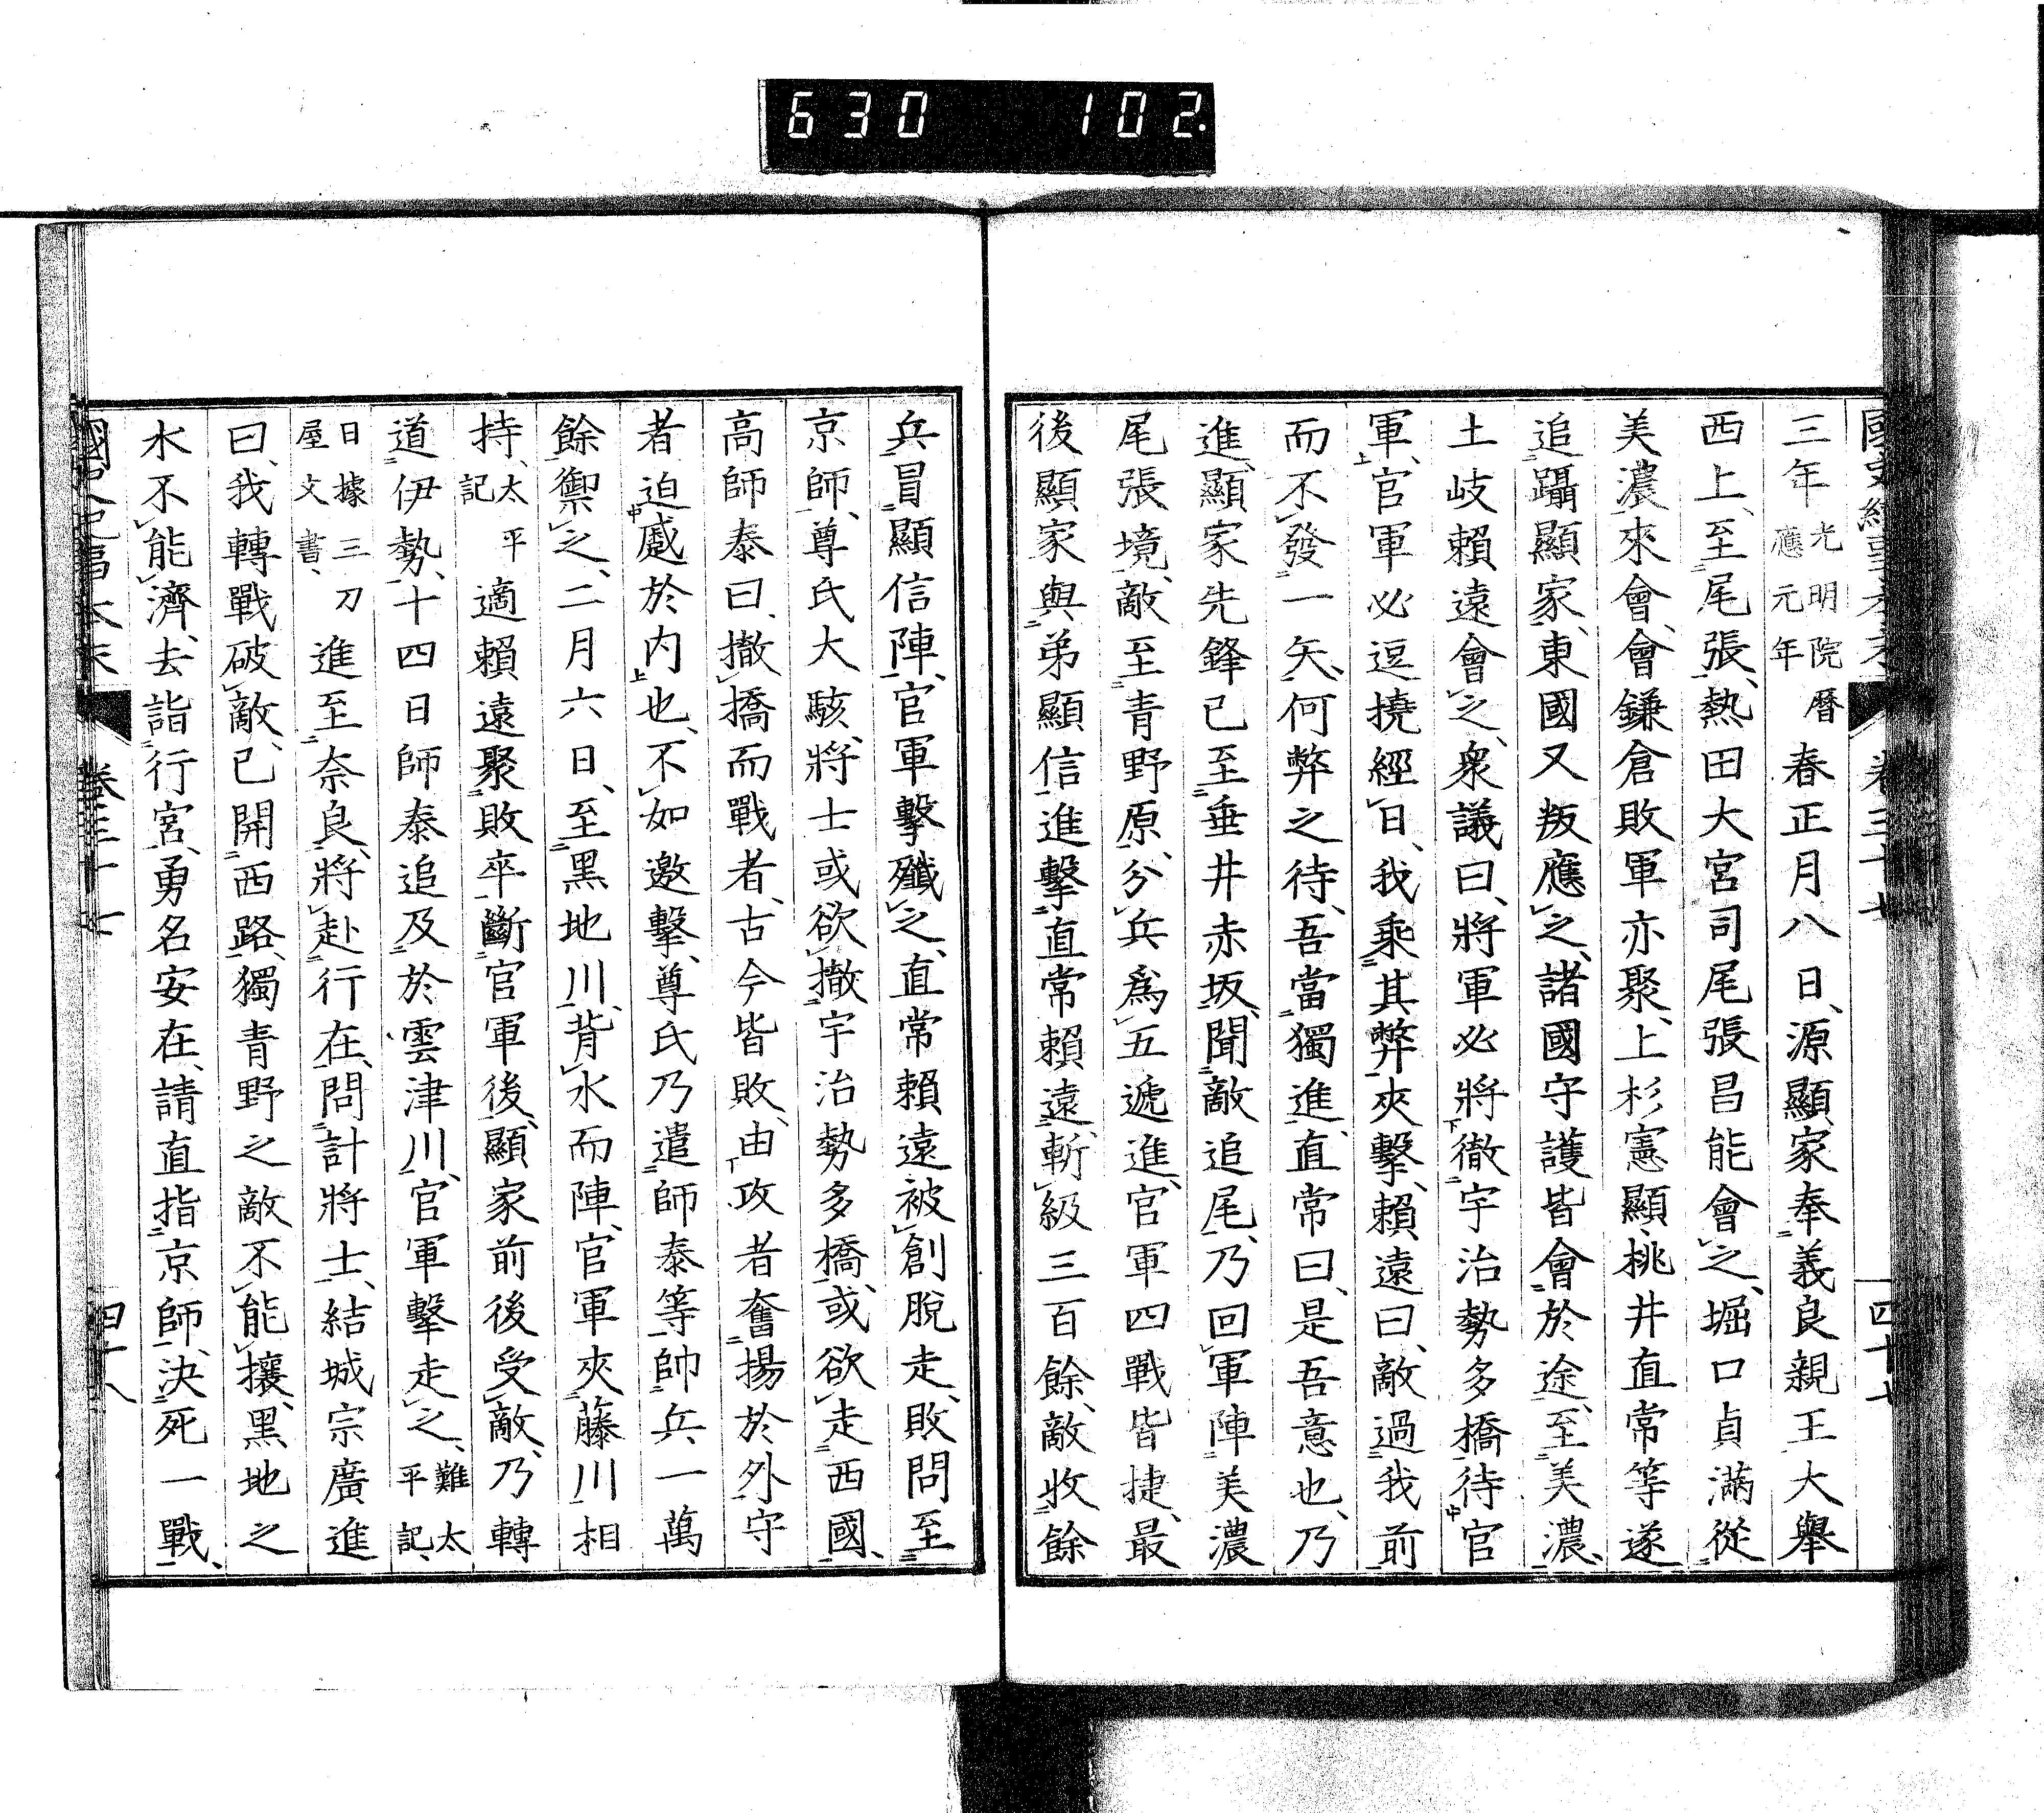 630 102.
三年光明院暦應元年春正月八日、源顯家奉義良親王大舉
西上、至尾張、熱田大宮司尾張昌能會之、堀口貞滿從
美濃來會、會鎌倉敗軍亦聚、上杉憲顯、桃井直常等遂
追躡顯家、東國又叛應之、諸國守護皆會於途、至美濃、
土岐頼遠會之、衆議曰、將軍必將徹宇治勢多橋待官
軍、官軍必逗撓經日、我乘其弊夾擊、頼遠曰、敵過我前
而不發一矢、何弊之待、吾當獨進、直常曰、是吾意也、乃
進、顯家先鋒已至垂井赤坂、聞敵追尾、乃回軍陣美濃
尾張境、敵至青野原、分兵爲五遞進、官軍四戰皆捷、最
後顯家與弟顯信進擊直常頼遠、斬級三百餘、敵收餘
兵冒顯信陣、官軍擊殲之、直常頼遠被創脫走、敗問至
京師、尊氏大駭、將士或欲撤宇治勢多橋、或欲走西國、
高師泰曰、撤橋而戰者、古今皆敗、由攻者奮揚於外守
者迫蹙於内也、不如邀擊、尊氏乃遣師泰等帥兵一萬
餘禦之、二月六日、至黑地川、背水而陣、官軍夾藤川相
持、太平記適頼遠聚敗卒斷官軍後、顯家前後受敵、乃轉
道伊勢、十四日師泰追及於雲津川、官軍擊走之、難太平記、
日據三刀屋文書、進至奈良、將赴行在、問計將士、結城宗廣進
曰、我轉戰破敵、已開西路、獨青野之敵不能攘、黑地之
水不能濟、去詣行宮、勇名安在、請直指京師、決死一戰、
卷三十七